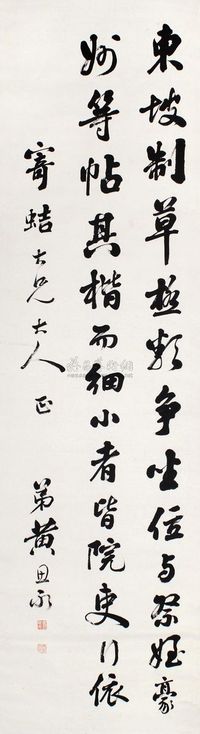 東坡制草極類争坐位与祭姪豪
州等帖其楷而細小者皆院吏行依
寄蛣大兄大人正
弟黄思永